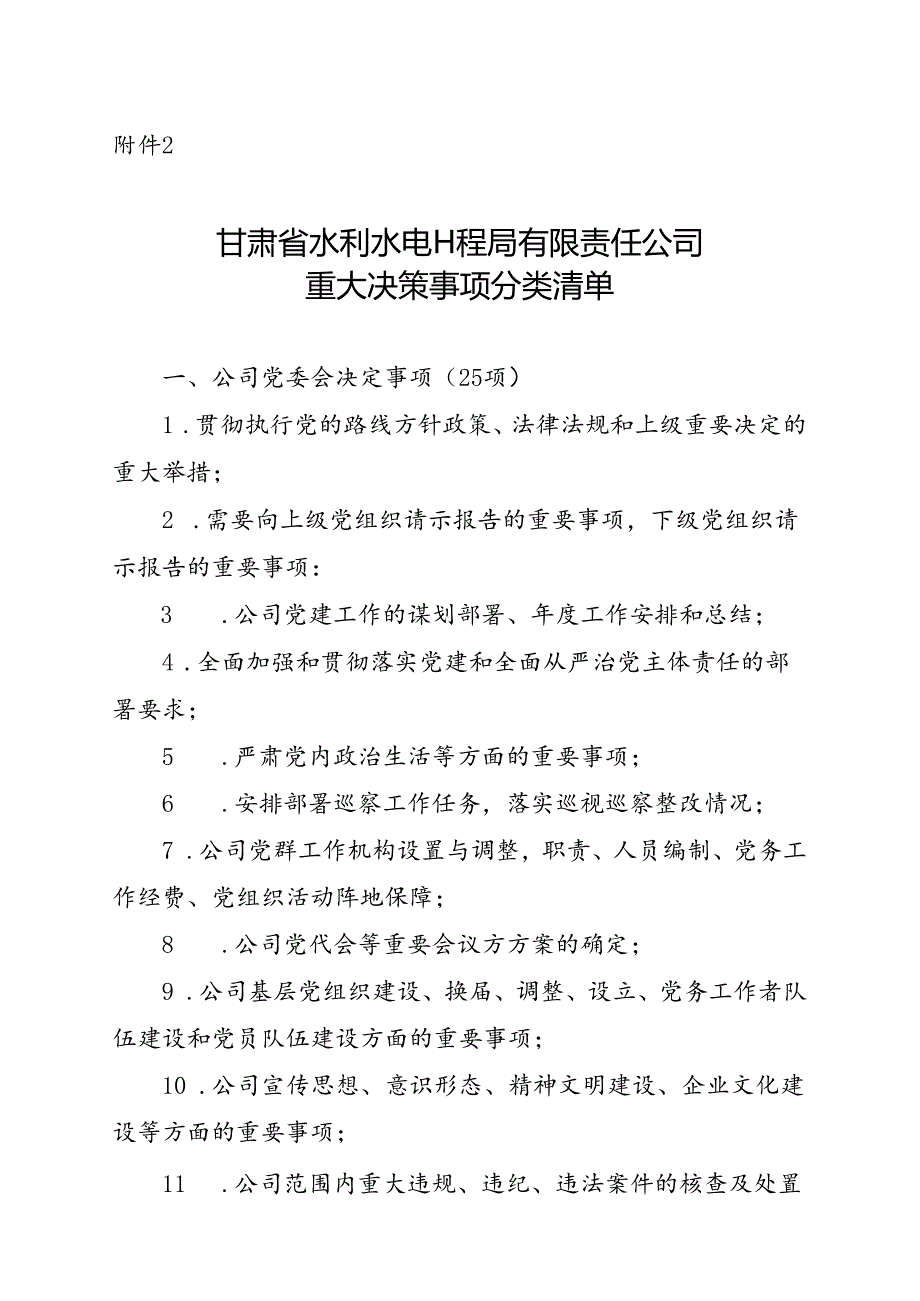 附件2
甘肃省水利水电H程局有限责任公司
重大决策事项分类清单
一、公司党委会决定事项（25项）
1.贯彻执行党的路线方针政策、法律法规和上级重要决定的
重大举措；
2 .需要向上级党组织请示报告的重要事项，下级党组织请
示报告的重要事项：
3 .公司党建工作的谋划部署、年度工作安排和总结；
4.全面加强和贯彻落实党建和全面从严治党主体责任的部
署要求；
5 .严肃党内政治生活等方面的重要事项；
6 .安排部署巡察工作任务，落实巡视巡察整改情况；
7.公司党群工作机构设置与调整，职责、人员编制、党务工
作经费、党组织活动阵地保障；
8 .公司党代会等重要会议方方案的确定；
9.公司基层党组织建设、换届、调整、设立、党务工作者队
伍建设和党员队伍建设方面的重要事项；
10.公司宣传思想、意识形态、精神文明建设、企业文化建
设等方面的重要事项；
11 .公司范围内重大违规、违纪、违法案件的核查及处置